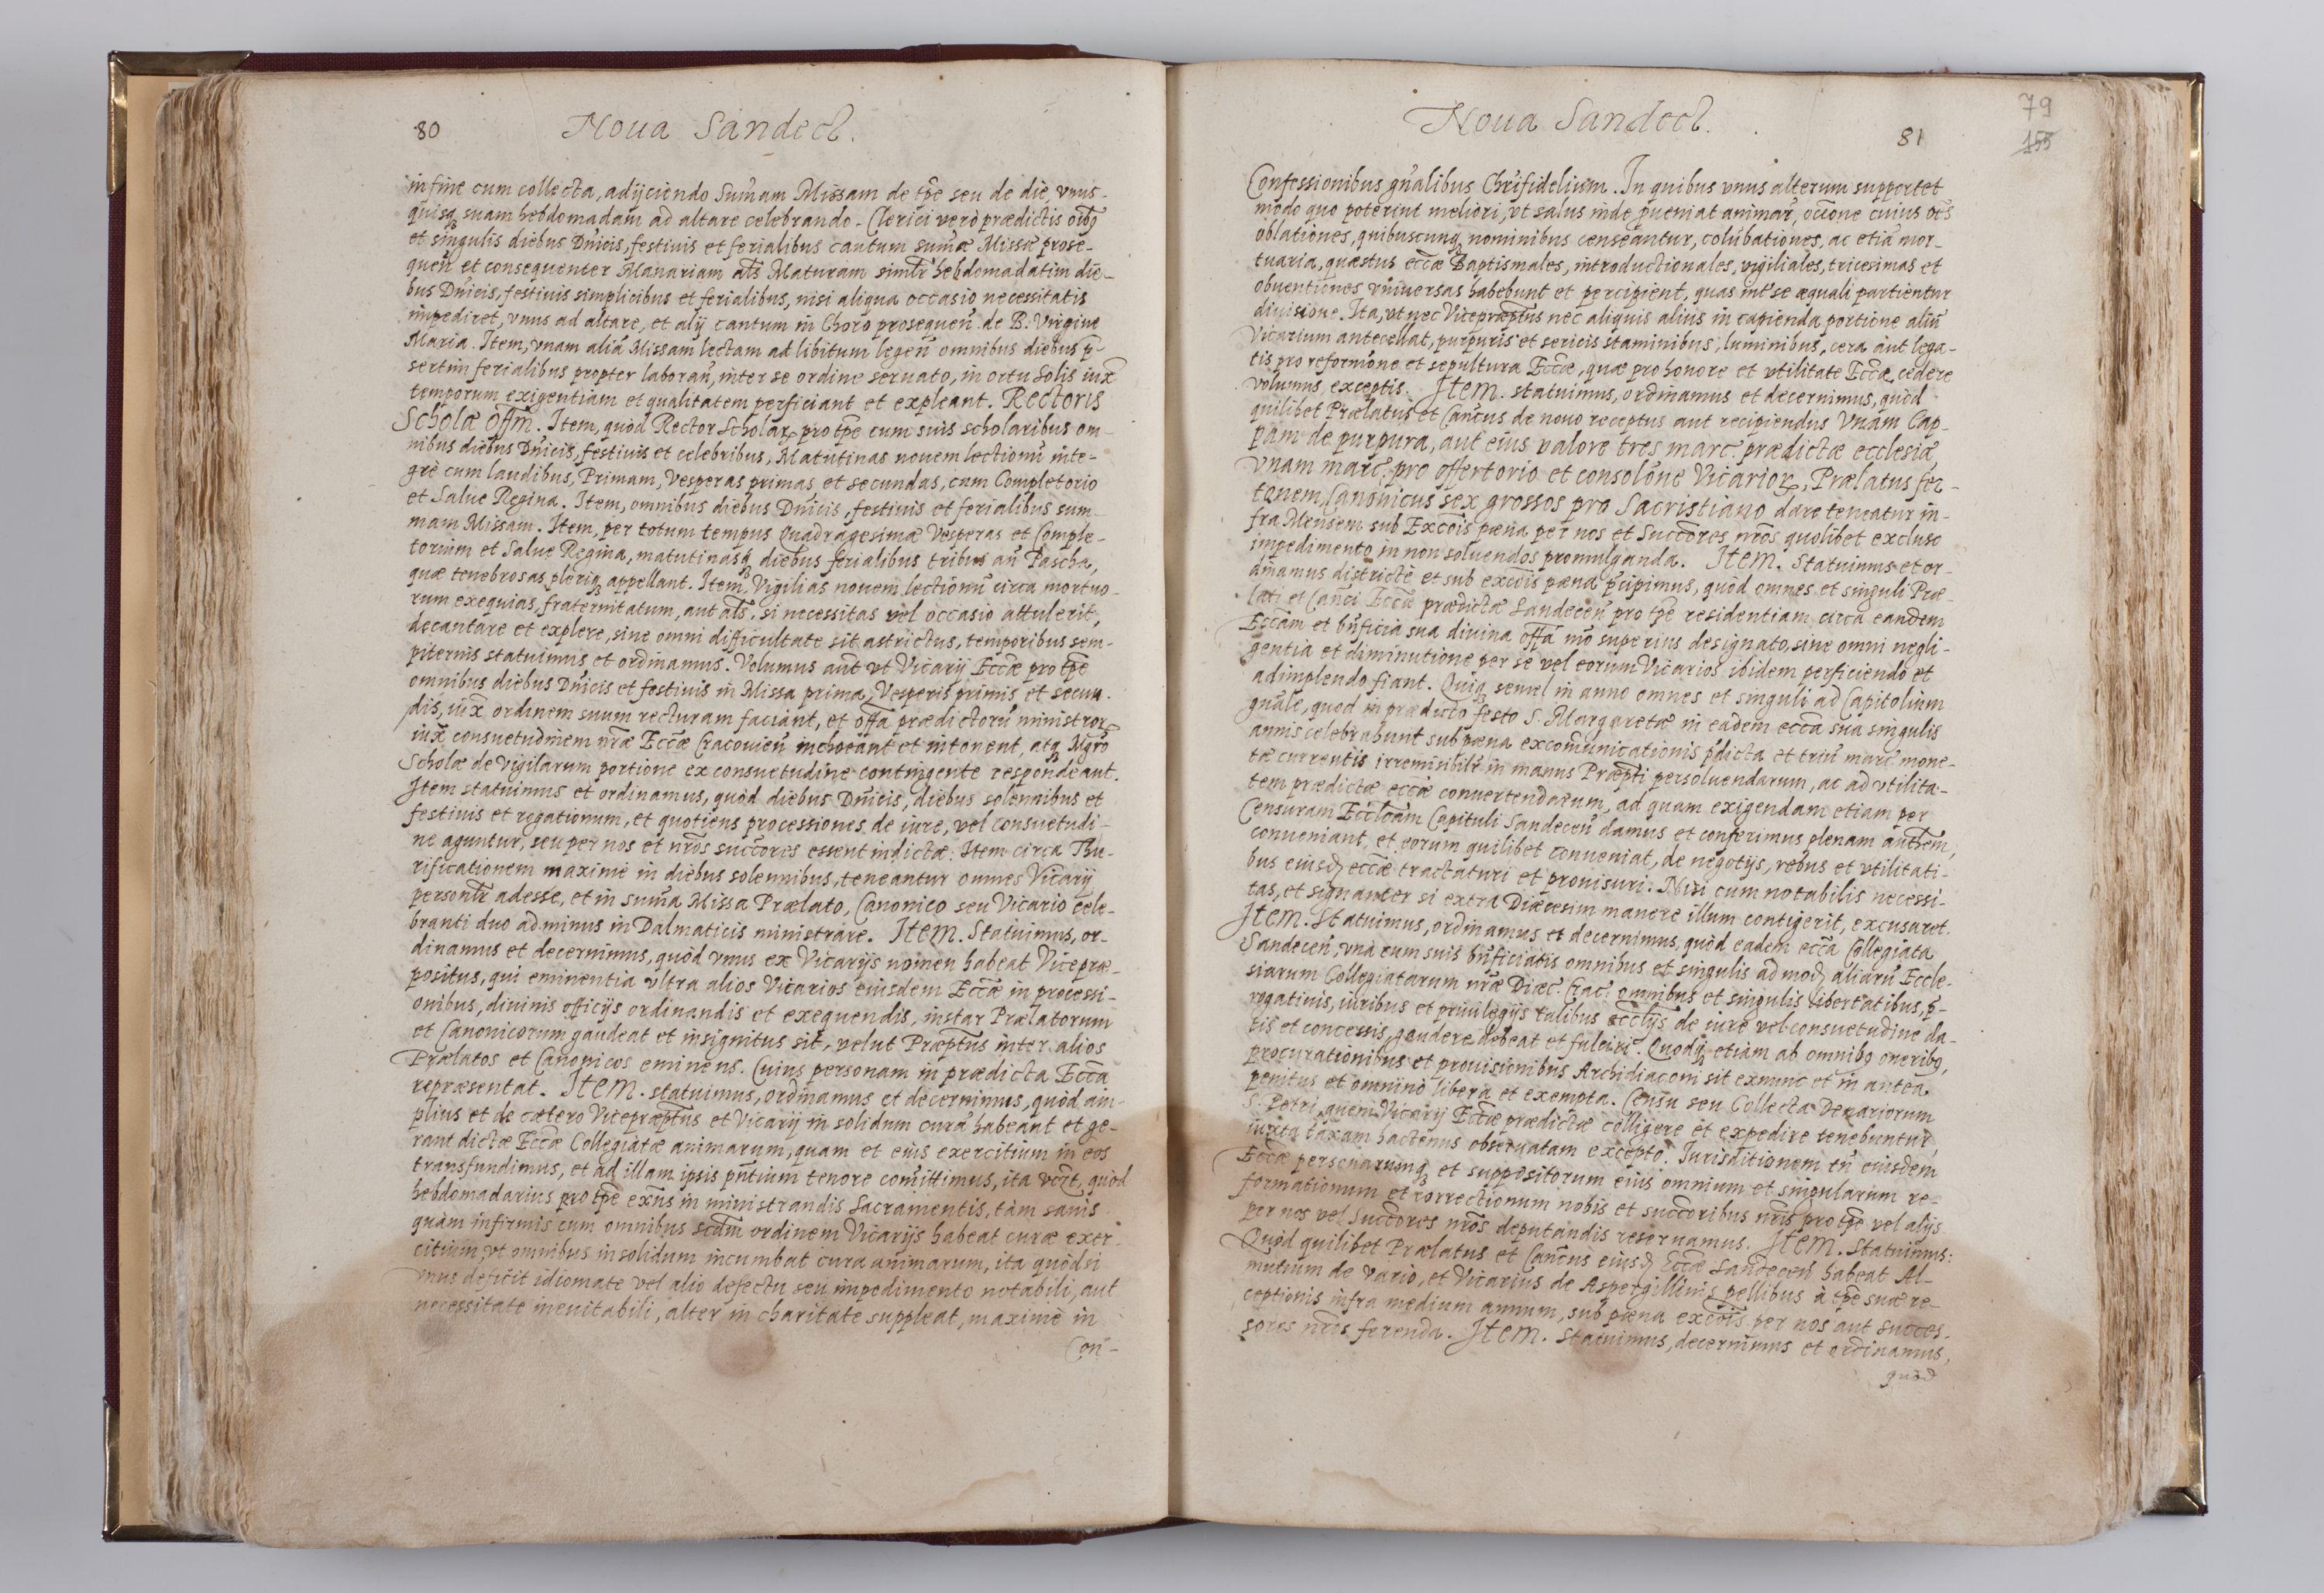 80
Noua Sandecz.
in fine cum collecta, adijciendo Sum̄am Missam de tp̄e seu de die, vnus-
quisq; suam hebdomadam ad altare celebrando. Clerici verò prædictis oībꝫ
et singulis diebus Dn̄icis, festiuis et ferialibus cantum sum̄æ Missæ prose-
quen̄ et consequenter Manariam al̄s Maturam similr̄ hebdomadatim die-
bus Dn̄icis, festiuis simplicibus et ferialibus, nisi aliqua occasio necessitatis
impediret, vnus ad altare, et alij cantum in Choro prosequen̄ de B. Virgine
Maria. Item, vnam aliā Missam lectam ad libitum legen̄ omnibus diebus p̄-
sertim ferialibus propter laboran̄, inter se ordine seruato, in ortu Solis iux̄
temporum exigentiam et qualitatem perficiant et expleant. Rectoris
Scholæ Offm̄. Item, quòd Rector Scholaꝝ pro tp̄e cum suis scholaribus om-
nibus diebus Dn̄icis, festiuis et celebribus, Matutinas nouem lectionū inte-
grè cum laudibus, Primam, Vesperas primas et secundas, cum Completorio
et Salue Regina. Item, omnibus diebus Dn̄icis, festiuis et ferialibus sum-
mam Missam. Item, per totum tempus Quadragesimæ Vesperas et Comple-
torium et Salue Regina, matutinasq; diebus ferialibus tribus an̄ Pascha,
quæ tenebrosas pleriq; appellant. Item, Vigilias nouem lectionū circa mortuo-
rum exequias, fraternitatum, aut al̄s, si necessitas vel occasio attulerit,
decantare et explere, sine omni difficultate sit astrictus, temporibus sem-
piternis statuimus et ordinamus. Volumus aut̄ vt Vicarij Eccl̄æ pro tp̄e
omnibus diebus Dn̄icis et festiuis in Missa prima, Vesperis primis et secun-
dis, iux̄ ordinem suum recturam faciant, et off̄a prædictorū ministroꝝ
iux̄ consuetudinem nr̄æ Eccl̄æ Cracouien̄ inchoeant et intonent, atq; Mgr̄o
Scholæ de vigiliarum portione ex consuetudine contingente respondeant.
Item statuimus et ordinamus, quòd diebus Dn̄icis, diebus solennibus et
festiuis et rogationum, et quotiens processiones de iure, vel consuetudi-
ne aguntur, seu per nos et nr̄os succ̄ores essent indictæ: Item circa Thu-
rificationem maximè in diebus solennibus, teneantur omnes Vicarij
personlr̄ adesse, et in sum̄a Missa Prælato, Canonico seu Vicario cele-
branti duo ad minus in Dalmaticis ministrare. Item. Statuimus, or-
dinamus et decernimus, quòd vnus ex Vicarijs nomen habeat Vicepræ-
positus, qui eminentia vltra alios Vicarios eiusdem Eccl̄æ in processi-
onibus, diuinis officijs ordinandis et exequendis, instar Prælatorum
et Canonicorum gaudeat et insignitus sit, velut Præpt̄us inter alios
Prælatos et Canonicos eminens. Cuius personam in prædicta Eccl̄a
repræsentat. Item. statuimus, ordinamus et decernimus, quòd am-
plius et de cætero Vicepræpt̄us et Vicarij in solidum curā habeant et ge-
rant dictæ Eccl̄æ Collegiatæ animarum, quam et eius exercitium in eos
transfundimus, et ad illam ipsis pn̄tium tenore com̄ittimus, ita vcz̄t, quòd
hebdomadarius pro tp̄e exn̄s in ministrandis Sacramentis, tàm sanis
quàm infirmis cum omnibus scdm̄ ordinem Vicarijs habeat curæ exer-
citium, vt omnibus in solidum incumbat cura animarum, ita quòd si
vnus deficit idiomate vel alio defectu seu impedimento notabili, aut
necessitate ineuitabili, alter in charitate suppleat, maximè in
Con-
Noua Sandecz.
81
79
155
Confessionibus gn̄alibus Chr̄ifidelium. In quibus vnus alterum supportet
modo quo poterint meliori, vt salus inde ꝑueniat animaꝝ, oc̄c̄one cuius oēs
oblationes, quibuscunq; nominibus censeantur, columbationes, ac etiā mor-
tuaria, quæstus eccl̄æ Baptismales, introductionales, vigiliales, tricesimas et
obuentiones vniuersas habebunt et percipient, quas int̄ se æquali partientur
diuisione. Ita, vt nec Vicepræpt̄us nec aliquis alius in capienda portione aliū
Vicarium antecellat, purpuris et sericis staminibus, luminibus, cera aut lega-
tis pro reformōne et sepultura Eccl̄æ, quæ pro honore et vtilitate Eccl̄æ cedere
volumus, exceptis. Item. statuimus, ordinamus et decernimus, quòd
quilibet Prælatus et Can̄cus de nouo receptus aut recipiendus Vnam Cap-
pam de purpura, aut eius valore tres marc. prædictæ ecclesiæ,
vnam marc. pro offertorio et consolōne Vicarioꝝ, Prælatus fer-
tonem, Canonicus sex grossos pro Sacristiano dare teneatur in-
fra Mensem sub Exc̄ois pæna per nos et Succ̄ores nr̄os quolibet excluso
impedimento in non soluendos promulganda. Item. Statuimus et or-
dinamus districtè et sub exc̄ois pæna p̄cipimus, quòd omnes et singuli Præ-
lati et Can̄ci Eccl̄æ prædictæ Sandecen̄ pro tp̄e residentiam circa eandem
Eccl̄am et bn̄ficia sua diuina off̄a mō superius designato, sine omni negli-
gentia et diminutione per se vel eorum Vicarios ibidem perficiendo et
adimplendo fiant. Quiq; semel in anno omnes et singuli ad Capitolium
gn̄ale, quod in prædicto festo S. Margaretæ in eadem eccl̄a sua singulis
annis celebrabunt sub pæna excom̄unicationis p̄dicta et triū marc. mone-
tæ currentis irremisibilr̄ in manus Præpt̄i persoluendarum, ac ad vtilita-
tem prædictæ eccl̄æ conuertendarum, ad quam exigendam etiam per
Censuram Eccl̄cam Capituli Sandecen̄ damus et conferimus plenam auth̄em,
conueniant, et eorum quilibet conueniat, de negotijs, rebus et vtilitati-
bus eiusd; eccl̄æ tractaturi et prouisuri. Nisi cum notabilis necessi-
tas, et signanter si extra Diæcesim manere illum contigerit, excusaret.
Item. Statuimus, ordinamus et decernimus, quòd eadem eccl̄a Collegiata
Sandecen̄, vnà cum suis bn̄ficiatis omnibus et singulis ad mod; aliarū Eccle-
siarum Collegiatarum nr̄æ Diæc. Crac. omnibus et singulis libertatibus, p̄-
rogatiuis, iuribus et priuilegijs talibus eccl̄ijs de iure vel consuetudine da-
tis et concessis, gaudere debeat et fulciri. Quodq; etiam ab omnibꝫ oneribꝫ,
procurationibus et prouisionibus Archidiaconi sit exnunc et in antea
penitus et omninò libera et exempta. Censu seu Collecta Denariorum
S. Petri, quem Vicarij Eccl̄æ prædictæ colligere et expedire tenebuntur,
iuxta taxam hactenus obseruatam excepto. Iurisditionem tn̄ eiusdem
Eccl̄æ personarumq; et suppositorum eius omnium et singularum re-
formationum et correctionum nobis et succ̄oribus nr̄is pro tp̄e vel alijs
per nos vel Succ̄ores nr̄os deputandis reseruamus. Item. Statuimus:
Quòd quilibet Prælatus et Can̄cus eiusd; Eccl̄æ Sandecen̄ habeat Al-
mutium de vario, et Vicarius de Aspergillinis pellibus à tp̄e suæ re-
ceptionis infra medium annum, sub pæna exc̄ois per nos aut Succes-
sores nr̄os ferenda. Item. Statuimus, decernimus et ordinamus,
quòd